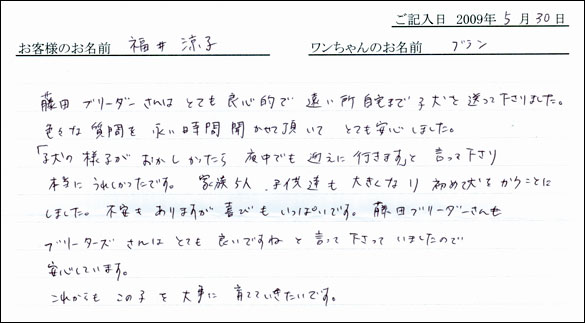 ご記入日 2009年 5月 30日
お客様のお名前 福井 涼子 ワンちゃんのお名前 ブラン
藤田 ブリーダー さんは とても 良心的で 遠い所 自宅まで 子犬を 送って下さりました。
色々な 質問を 永い時間 聞かせて頂いて とても安心しました。
「子犬の様子が おかしかったら 夜中でも 迎えに行きます」と 言って下さり
本当に うれしかったです。 家族5人、子供達も 大きくなり 初めて犬を かうことに
しました。不安も ありますが 喜びも いっぱいです。 藤田ブリーダーさんも
ブリーダーズ さんは とても 良いですね と言って下さって いましたので
安心しています。
これからも この子を 大事に 育てていきたいです。